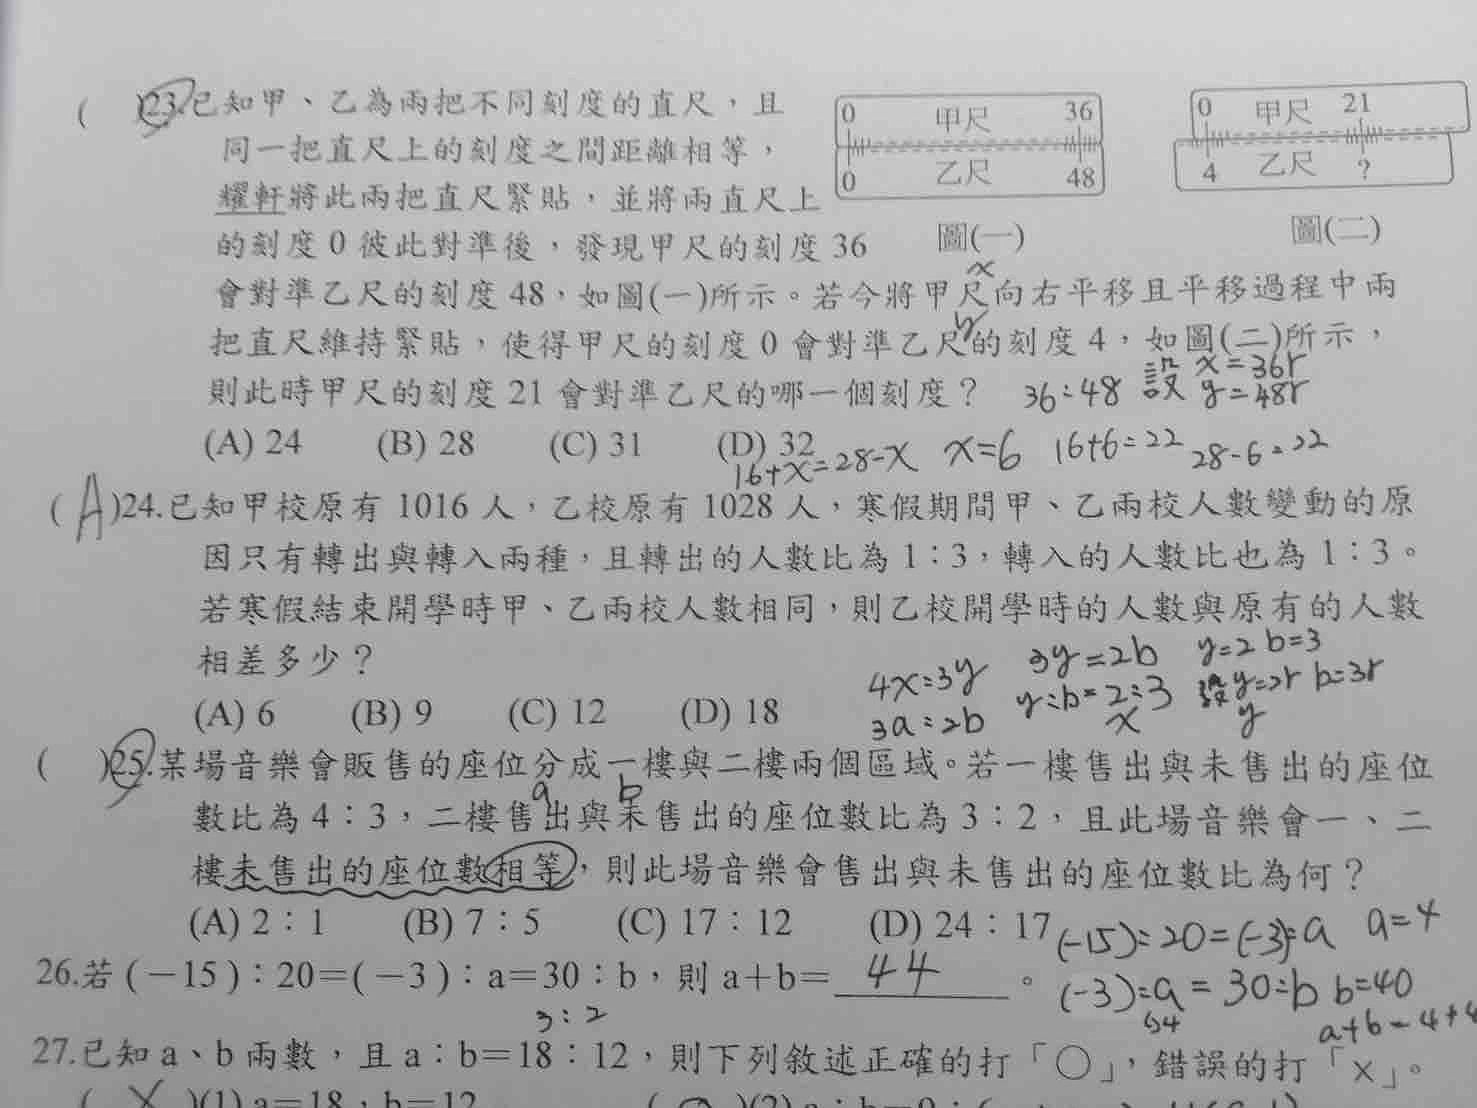 (    )23.已知甲、乙為兩把不同刻度的直尺，且
同一把直尺上的刻度之間距離相等，
耀軒將此兩把直尺緊貼，並將兩直尺上
的刻度 0 彼此對準後，發現甲尺的刻度 36
0 甲尺 36
0 乙尺 48
圖(一)
0 甲尺 21
4 乙尺 ?
圖(二)
x
會對準乙尺的刻度 48，如圖(一)所示。若今將甲尺向右平移且平移過程中兩
y
把直尺維持緊貼，使得甲尺的刻度 0 會對準乙尺的刻度 4，如圖(二)所示，
則此時甲尺的刻度 21 會對準乙尺的哪一個刻度？ 36:48 設 x=36r
y=48r
(A) 24 (B) 28 (C) 31 (D) 32
16+x=28-x x=6 16+6=22 28-6=22
(A)24.已知甲校原有 1016 人，乙校原有 1028 人，寒假期間甲、乙兩校人數變動的原
因只有轉出與轉入兩種，且轉出的人數比為 1：3，轉入的人數比也為 1：3。
若寒假結束開學時甲、乙兩校人數相同，則乙校開學時的人數與原有的人數
相差多少？
4x=3y 3y=2b y=2 b=3
3a=2b y:b=2:3 設y=2r b=3r
(A) 6 (B) 9 (C) 12 (D) 18
x y
(    )25.某場音樂會販售的座位分成一樓與二樓兩個區域。若一樓售出與未售出的座位
a b
數比為 4：3，二樓售出與未售出的座位數比為 3：2，且此場音樂會一、二
樓未售出的座位數相等，則此場音樂會售出與未售出的座位數比為何？
(A) 2：1 (B) 7：5 (C) 17：12 (D) 24：17
(-15):20=(-3):a a=4
26.若 (－15)：20＝(－3)：a＝30：b，則 a＋b＝ 44 。
(-3):a=30:b b=40
4
a+b=4+4
3:2
27.已知 a、b 兩數，且 a：b＝18：12，則下列敘述正確的打「○」，錯誤的打「×」。
( X )(1) a＝18，b＝12